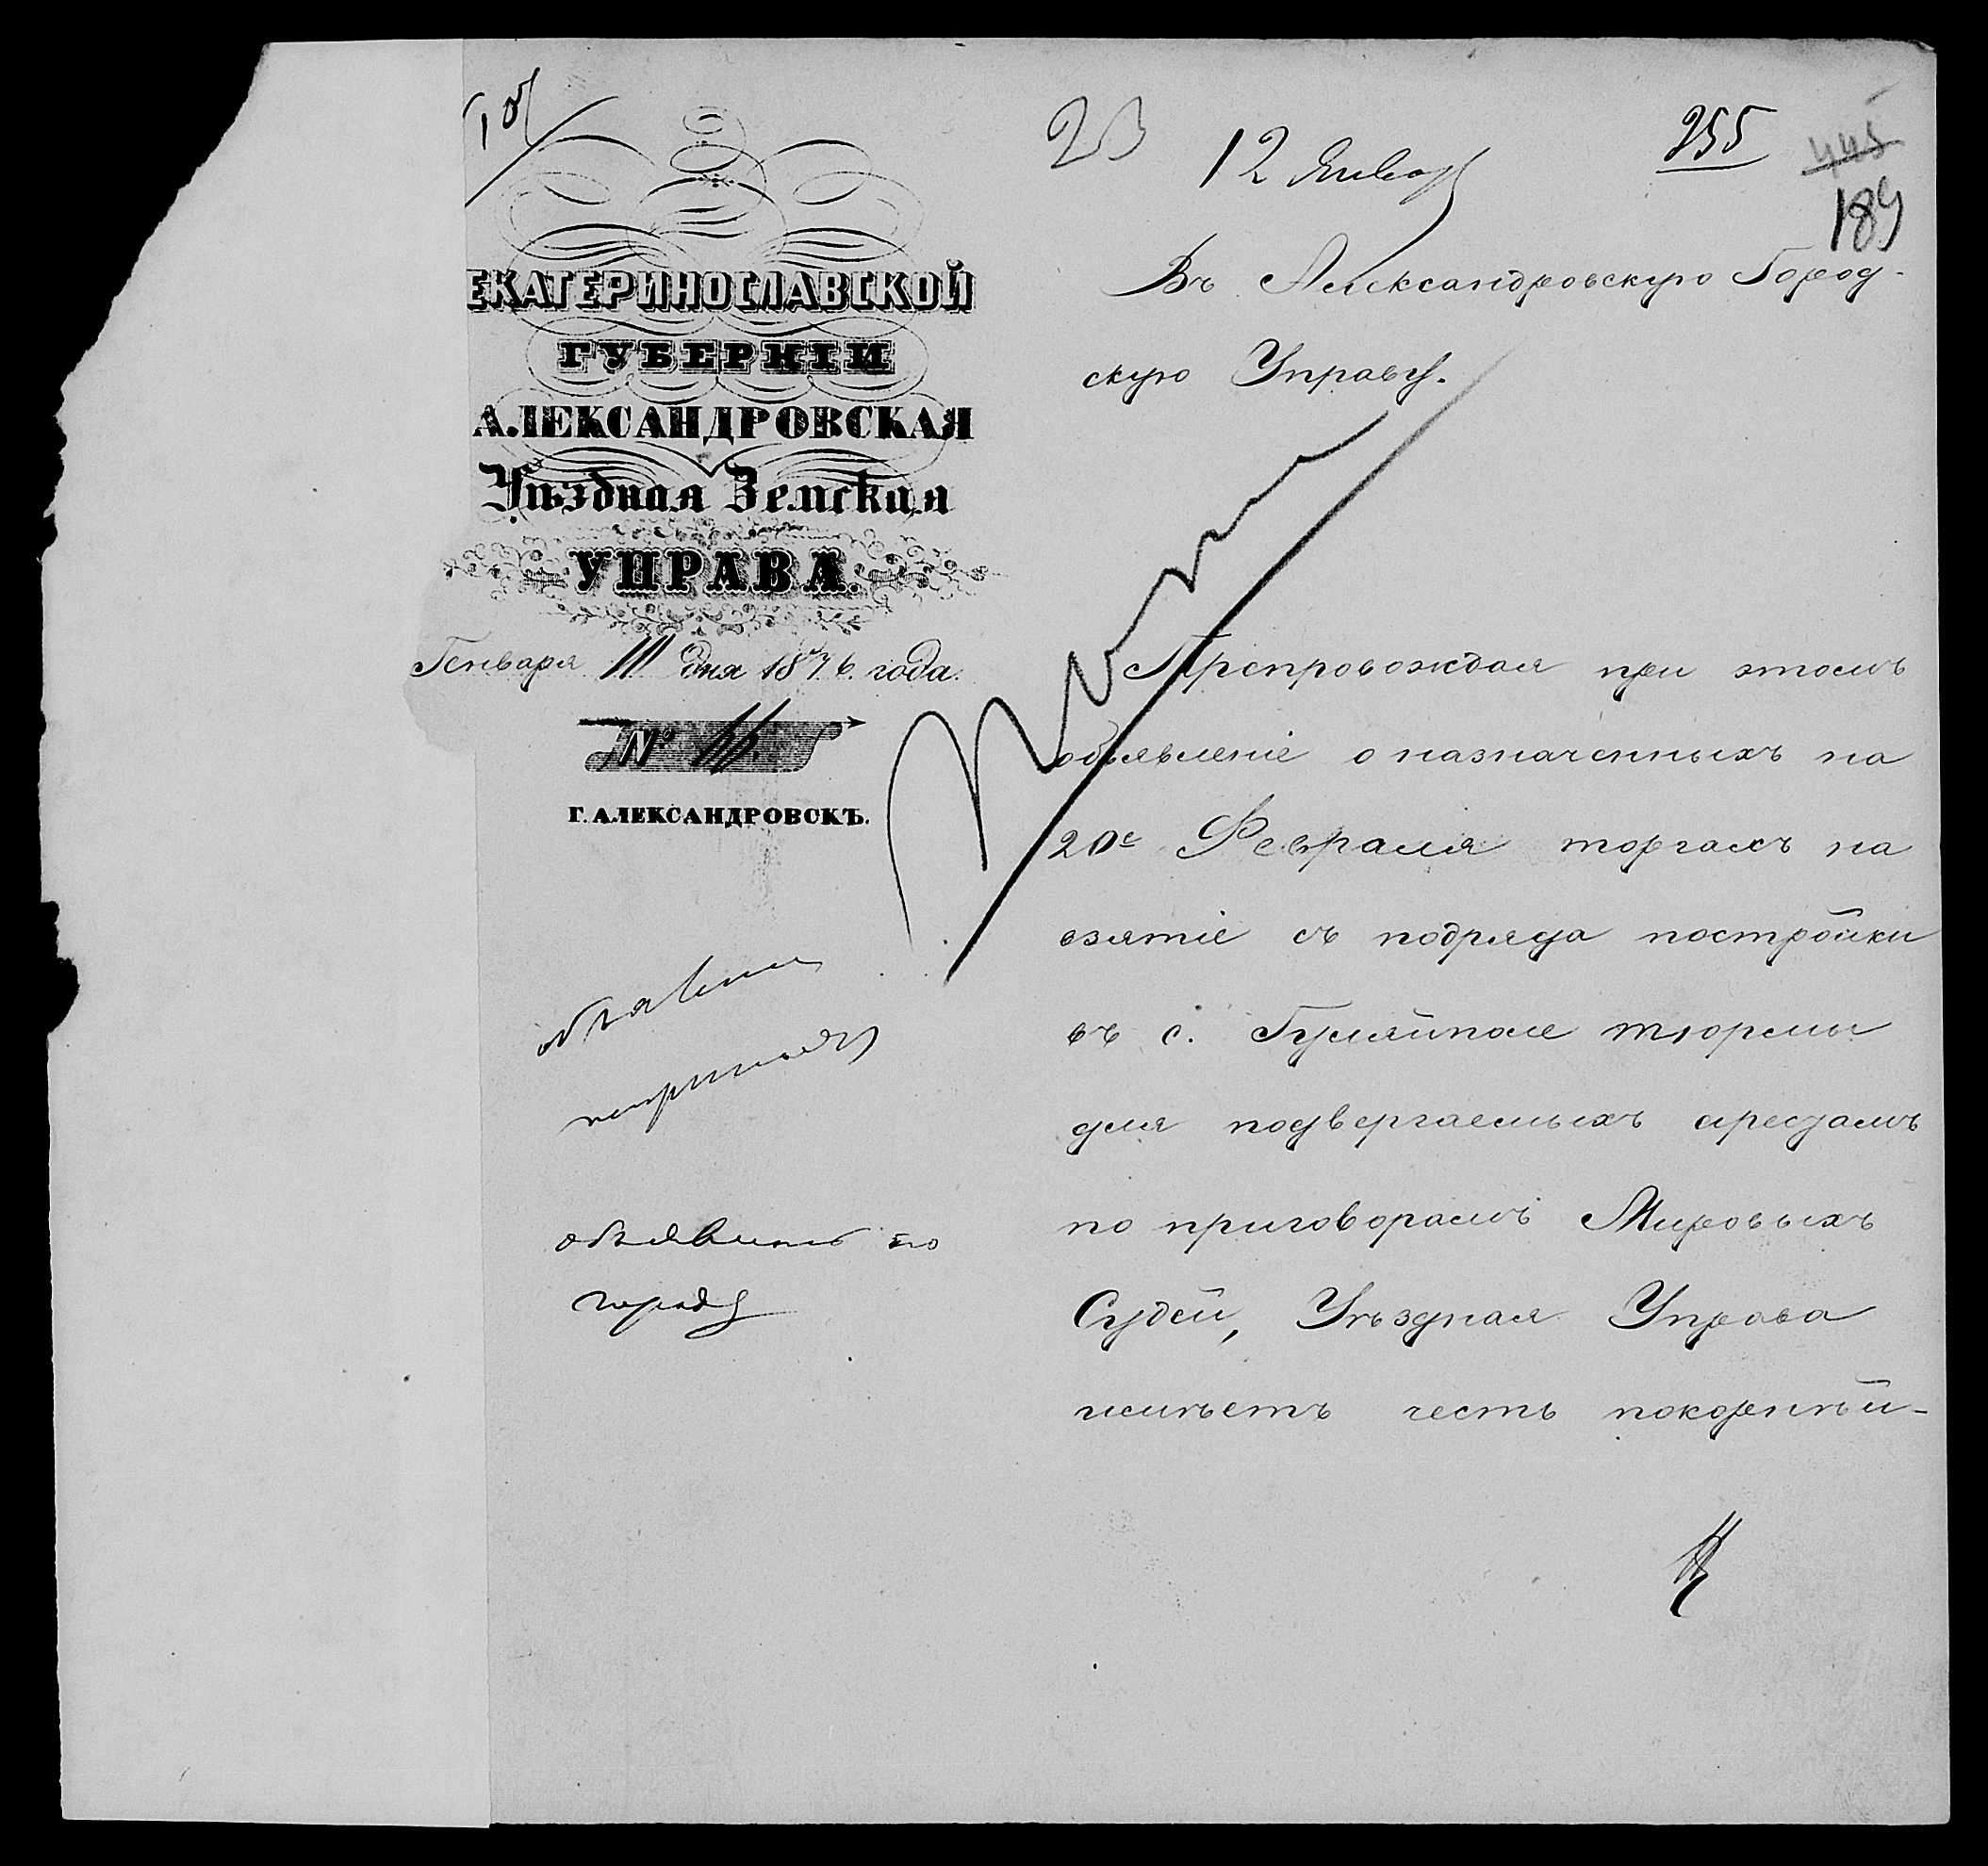 23
12 Января
255
445
189
ЕКАТЕРИНОСЛАВСКОЙ
ГУБЕРНІИ
АЛЕКСАНДРОВСКАЯ
Уѣздная Земская
УПРАВА.
Генваря 11 дня 1876. года.
№ 44
Г. АЛЕКСАНДРОВСКЪ.
объявить по
городу
Въ Александровскую Город-
скую Управу.
Препровождая при этомъ
объявленіе о назначенныхъ на
20е Февраля торгахъ на
взятіе съ подряда постройки
въ с. Гуляйполе тюрьмы
для подвергаемыхъ арестамъ
по приговорамъ Мировыхъ
Судей, Уѣздная Управа
имѣетъ честь покорнѣй-